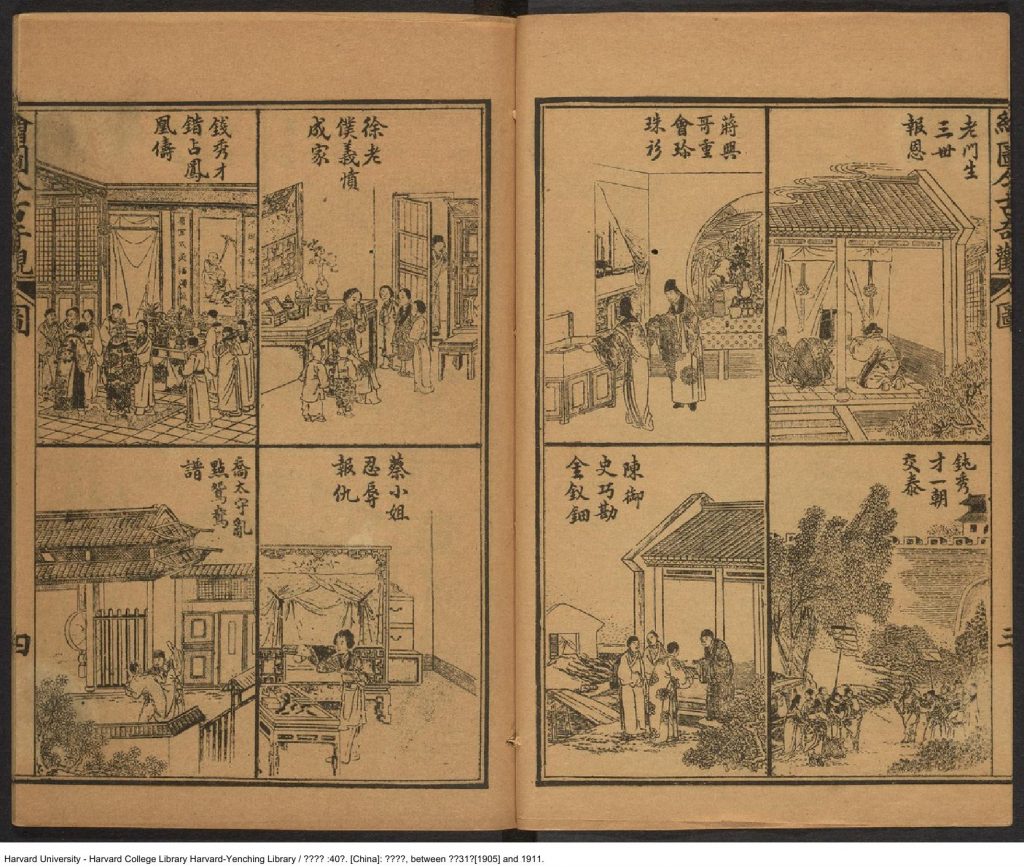 繪圖今古奇觀
圖
三
老門生
三世
報恩
蔣興
哥重
會珍
珠衫
鈍秀
才一朝
交泰
陳御
史巧勘
金釵鈿
徐老
僕義憤
成家
錢秀才
錯占鳳
凰儔
蔡小姐
忍辱
報仇
喬太守亂
點鴛鴦
譜
繪圖今古奇觀
圖
四
Harvard University - Harvard College Library Harvard-Yenching Library / ???? :40?. [China]: ????, between ??31?[1905] and 1911.